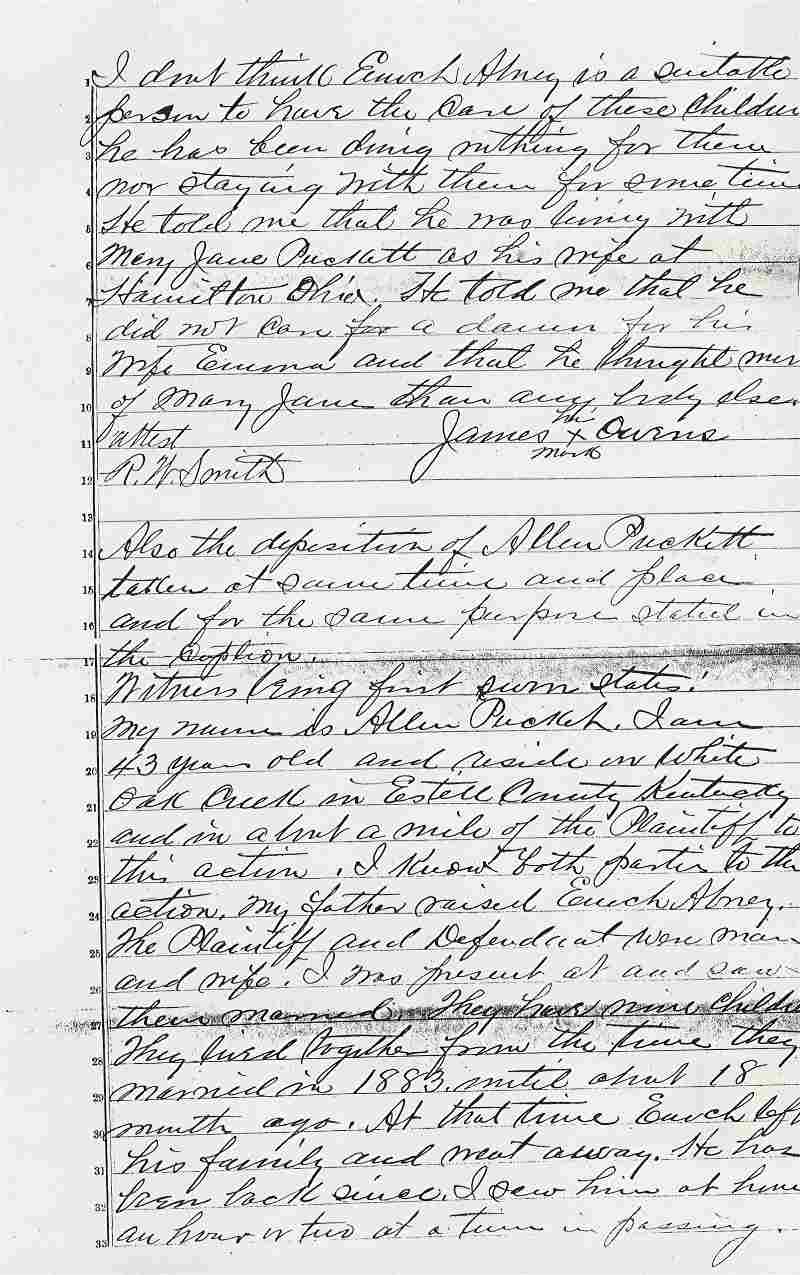 1 I dont think Enoch Abney is a suitable
2 person to have the care of these children
3 he has been doing nothing for them
4 nor staying with them for some time
5 He told me that he was living with
6 Mary Jane Puckett as his wife at
7 Hamilton Ohio. He told me that he
8 did not care for a damn for his
9 wife Emma and that he thought more
10 of Mary Jane than any body else.
11 attest James his x mark Owens
12 R. W. Smith
13
14 Also the deposition of Allen Puckett
15 taken at same time and place
16 and for the same purpose stated in
17 the caption.
18 Witness being first sworn states:
19 My name is Allen Puckett. I am
20 43 years old and reside on White
21 Oak Creek in Estill County Kentucky
22 and in about a mile of the Plaintiff to
23 this action. I know both parties to the
24 action. My father raised Enoch Abney.
25 The Plaintiff and Defendant were man
26 and wife. I was present at and saw
27 them married. They have nine children
28 They lived together from the time they
29 married in 1883. until about 18
30 month ago. At that time Enoch left
31 his family and went away. He has
32 been back since. I saw him at home
33 an hour or two at a time in passing.